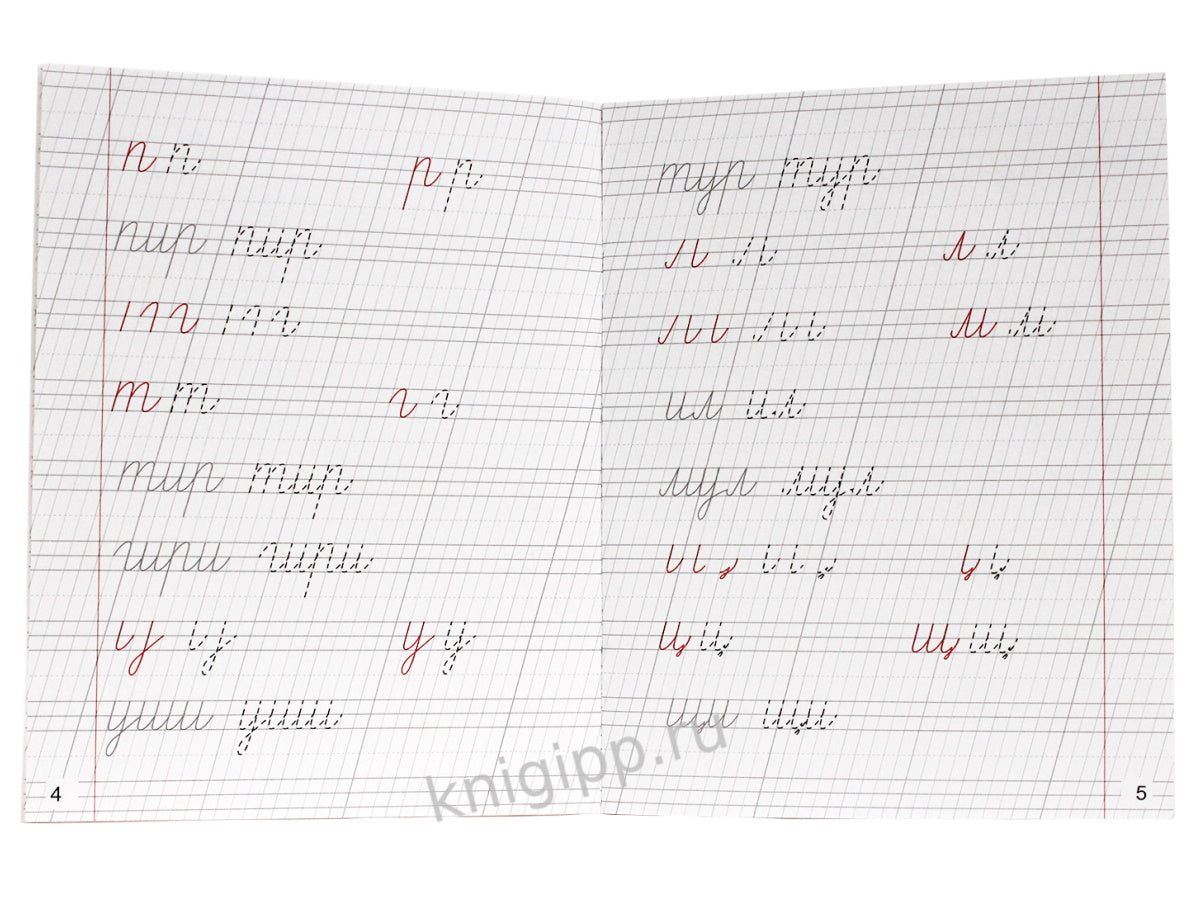 п п р р
пир пир
т т г г
тир тир
гири гири
у у
уши уши
4
тур тур
л л
м м
ил ил
мул мул
ц ц щ щ
щи щи
5
knigipp.ru